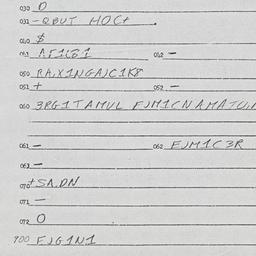 030 O
031 - QBUT HOCt.
040 $
041 AF1C61 042 -
050 RA.X1NGAJC1K8
051 + 052 -
060 3RG1TAMUL FJM1CNAMATU
061 - 062 FJM1C3R
063 -
070 +SA.DN
071 -
072 O
900 FJG1N1